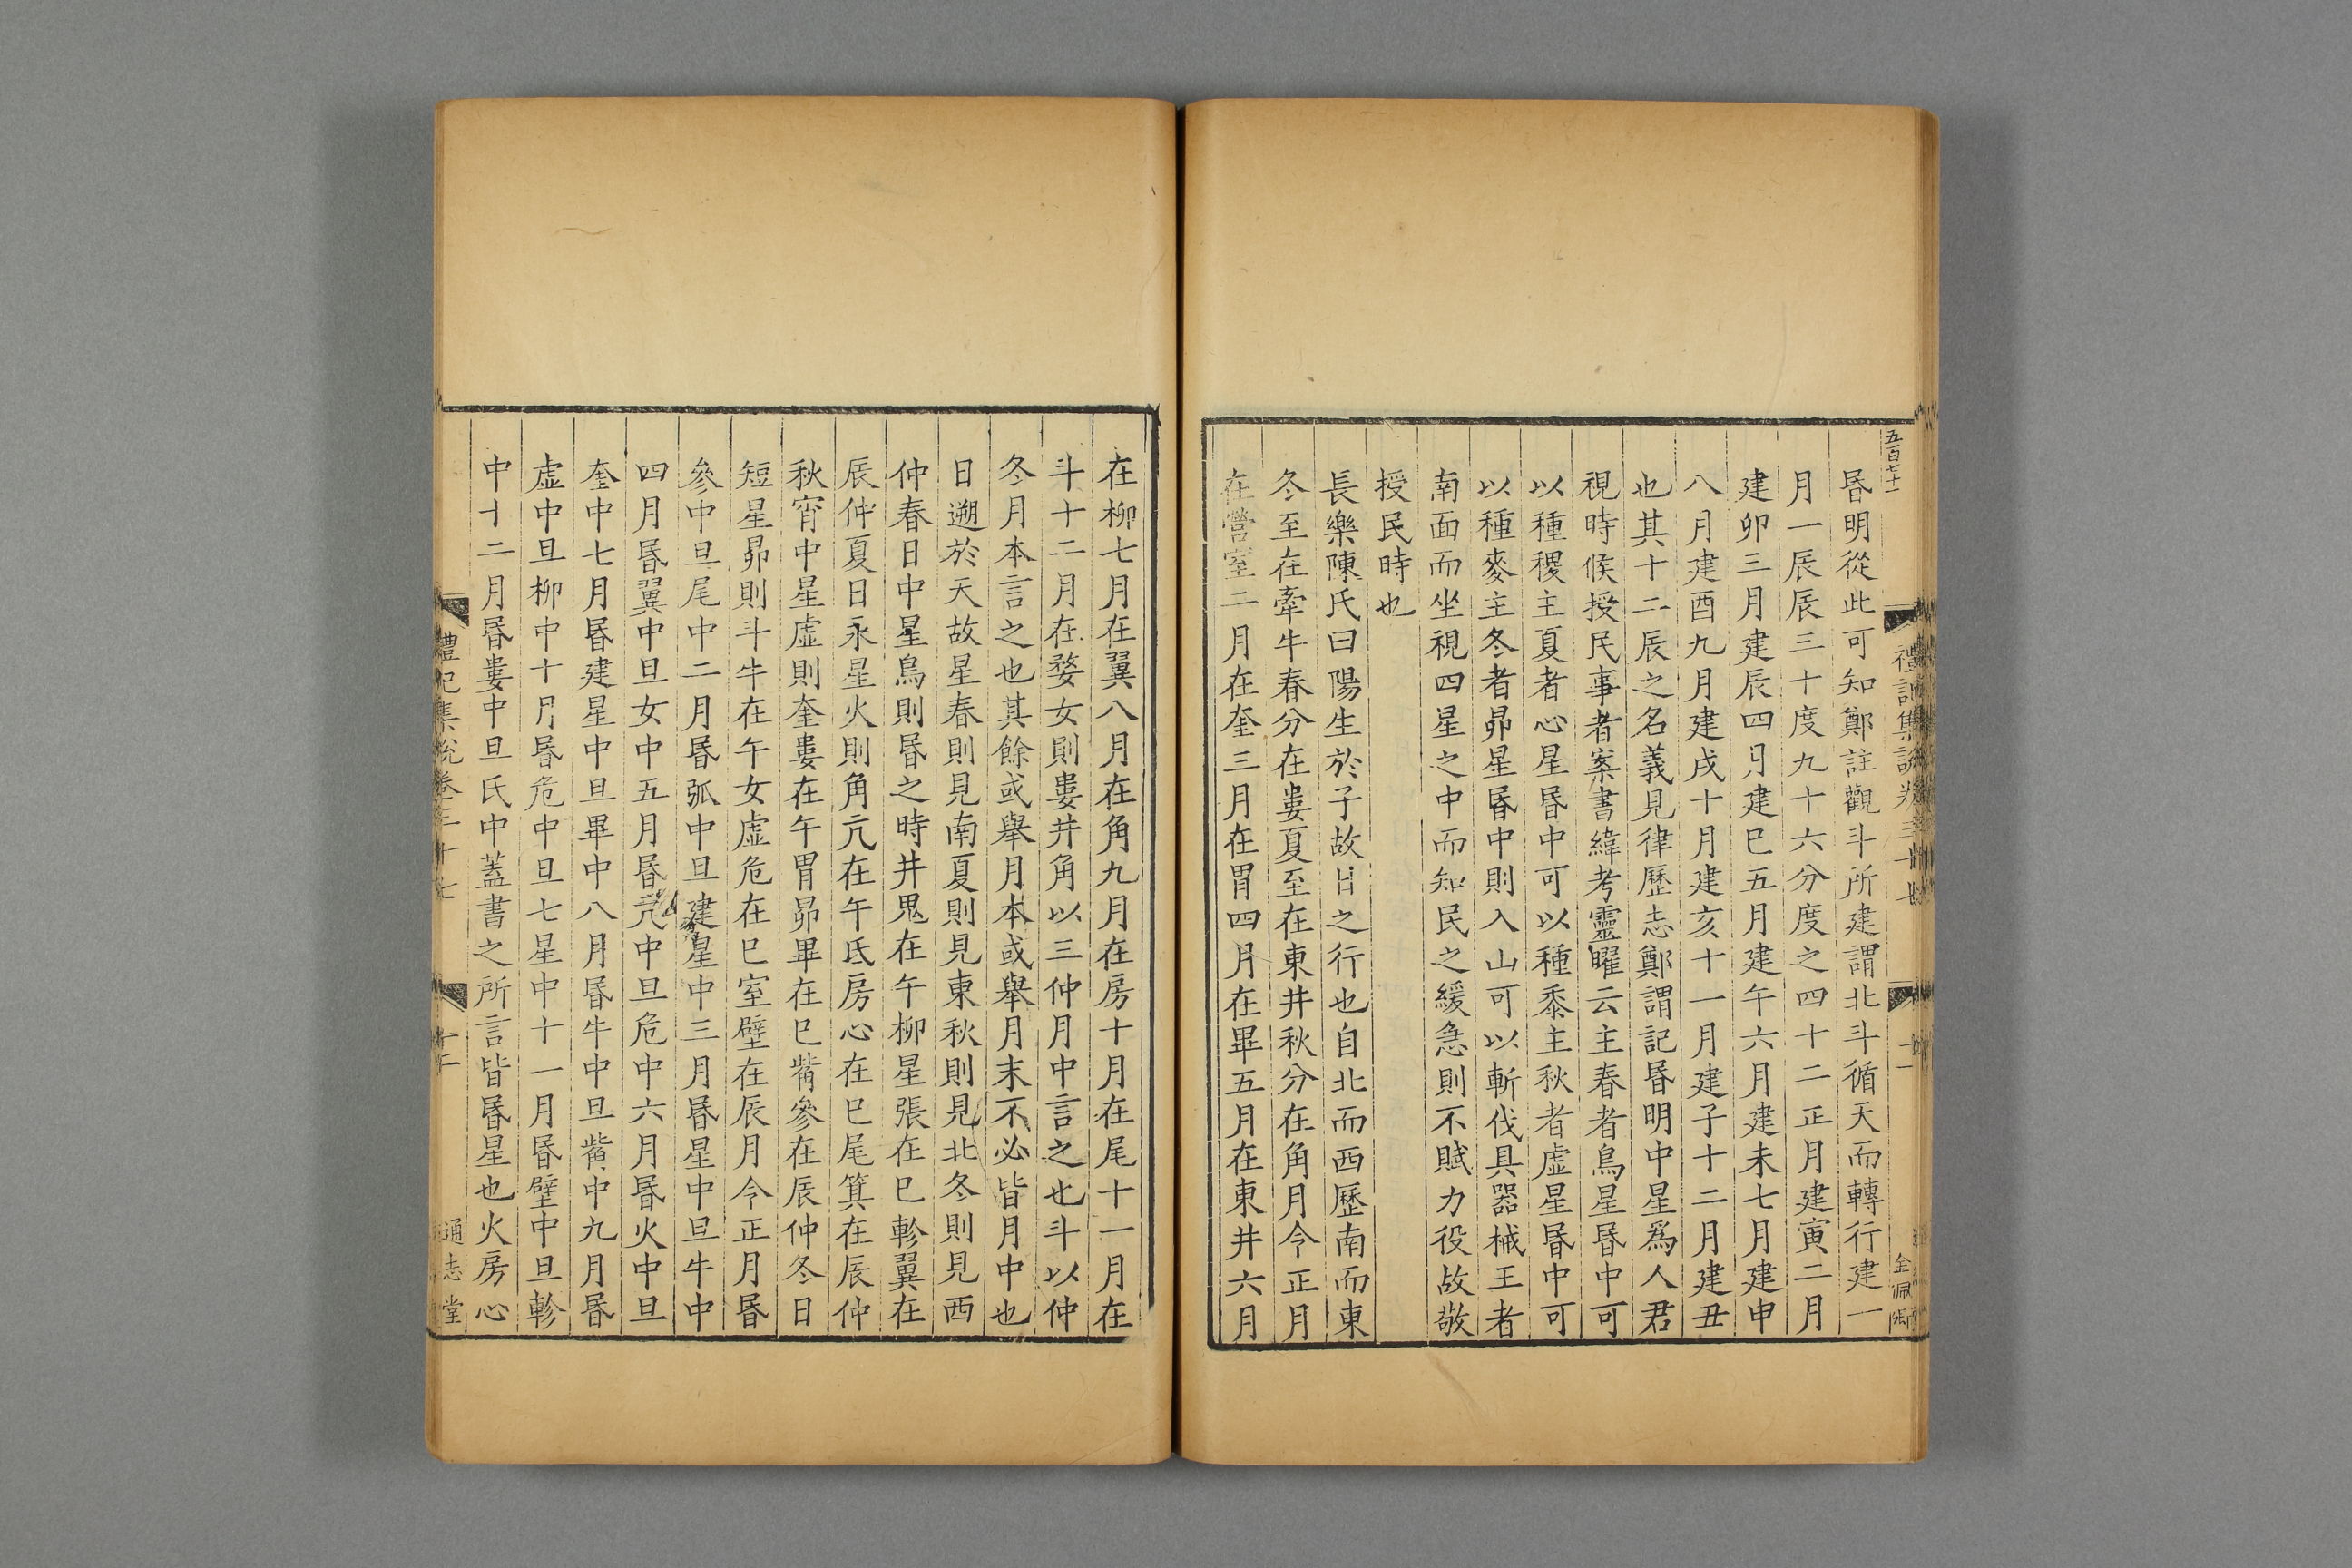 五百七十一
昬明從此可知鄭註觀斗所建謂北斗循天而轉行建一
月一辰辰三十度九十六分度之四十二正月建寅二月
建卯三月建辰四月建巳五月建午六月建未七月建申
八月建酉九月建戌十月建亥十一月建子十二月建丑
也其十二辰之名義見律歷志鄭謂記昬明中星爲人君
視時候授民事者案書緯考靈曜云主春者鳥星昬中可
以種稷主夏者心星昬中可以種黍主秋者虛星昬中可
以種麥主冬者昴星昬中則入山可以斬伐具器械王者
南面而坐視四星之中而知民之緩急則不賦力役故敬
授民時也
長樂陳氏曰陽生於子故日之行也自北而西歷南而東
冬至在牽牛春分在婁夏至在東井秋分在角月令正月
在營室二月在奎三月在胃四月在畢五月在東井六月
在柳七月在翼八月在角九月在房十月在尾十一月在
斗十二月在婺女則婁井角以三仲月中言之也斗以仲
冬月本言之也其餘或舉月本或舉月末不必皆月中也
日遡於天故星春則見南夏則見東秋則見北冬則見西
仲春日中星鳥則昬之時井鬼在午柳星張在巳軫翼在
辰仲夏日永星火則角亢在午氐房心在巳尾箕在辰仲
秋宵中星虛則奎婁在午胃昴畢在巳觜參在辰仲冬日
短星昴則斗牛在午女虛危在巳室壁在辰月令正月昬
參中旦尾中二月昬弧中旦建星中三月昬星中旦牛中
四月昬翼中旦女中五月昬亢中旦危中六月昬火中旦
奎中七月昬建星中旦畢中八月昬牛中旦觜中九月昬
虛中旦柳中十月昬危中旦七星中十一月昬壁中旦軫
中十二月昬婁中旦氐中蓋書之所言皆昬星也火房心
禮記集說卷三十七
十一
通志堂